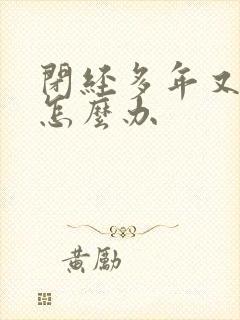 閉經多年又
怎麼办
黄勵